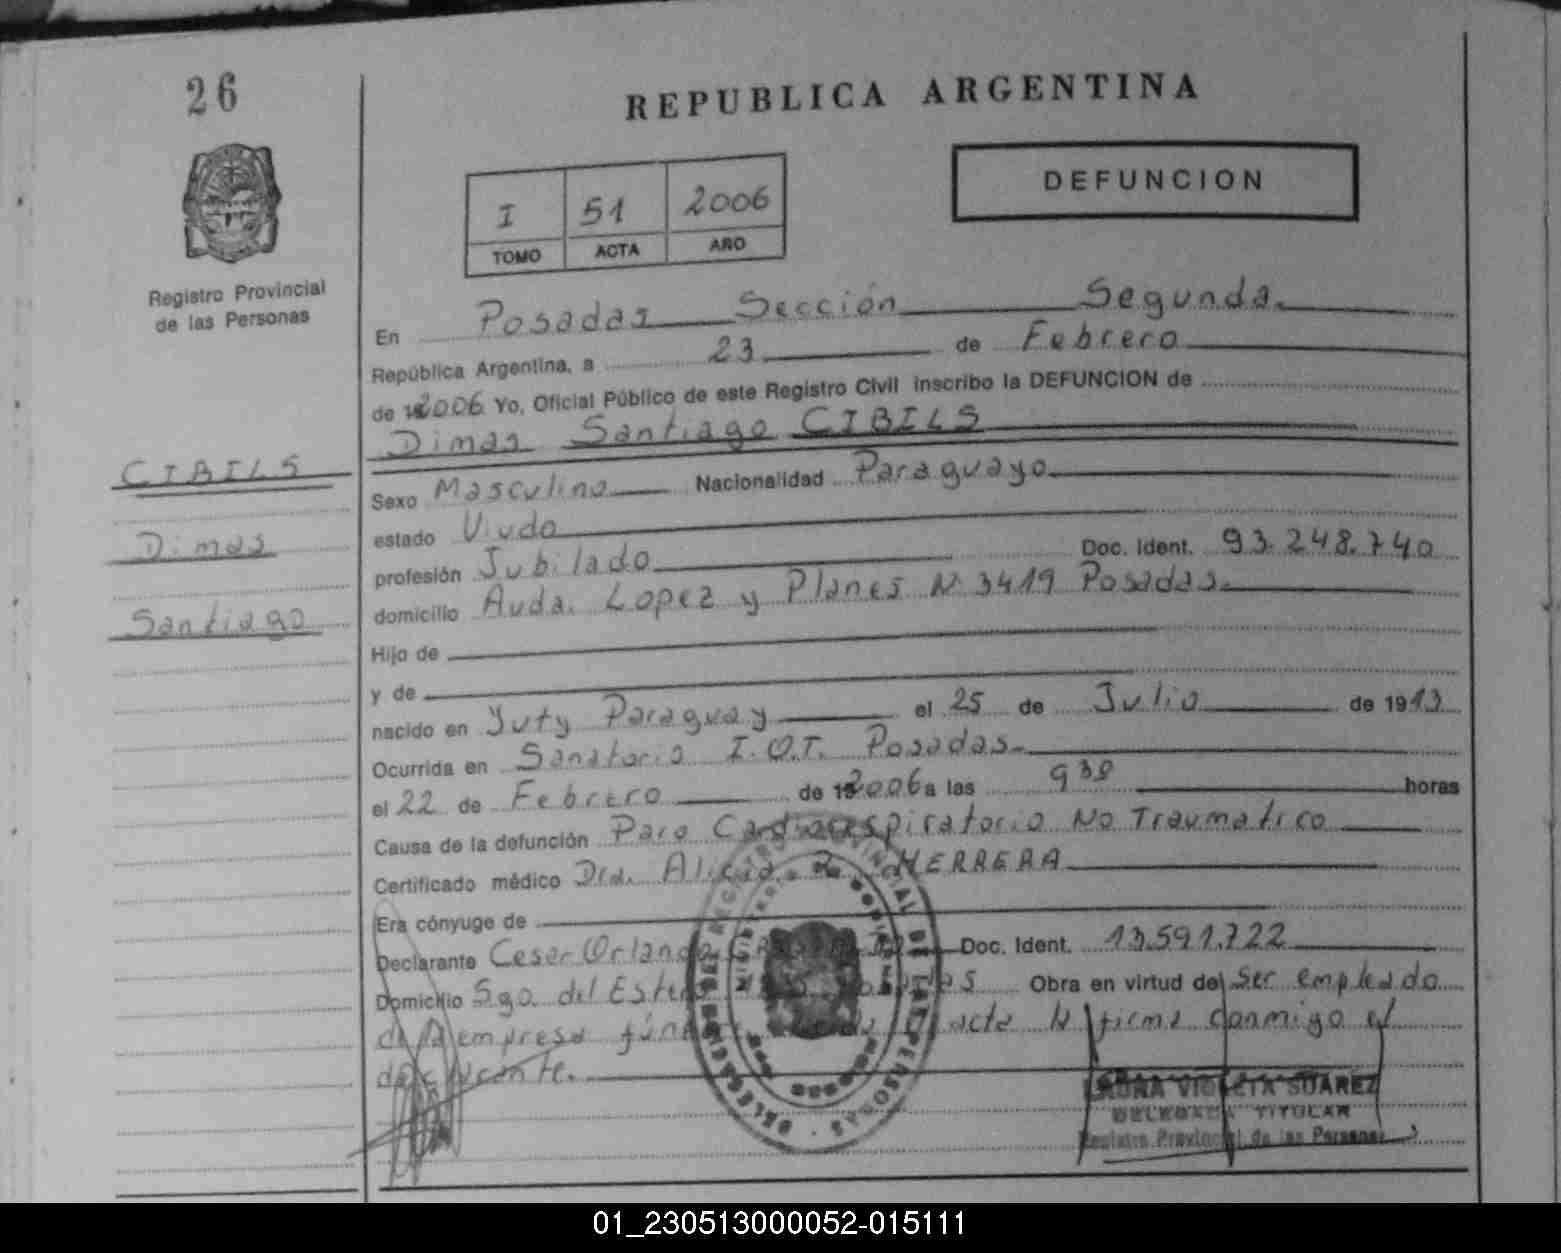 26
REPUBLICA ARGENTINA
DEFUNCION
I 51 2006
TOMO ACTA AÑO
Registro Provincial
de las Personas
En Posadas Sección Segunda
República Argentina, a 23 de Febrero
de 2006 Yo, Oficial Público de este Registro Civil inscribo la DEFUNCION de
Dimas Santiago CIBILS
CIBILS
Dimas
Santiago
Sexo Masculino Nacionalidad Paraguayo
estado Viudo
profesión Jubilado Doc. Ident. 93.248.740
domicilio Avda. Lopez y Planes N 3419 Posadas
Hijo de
y de
nacido en Yuty Paraguay el 25 de Julio de 1913
Ocurrida en Sanatorio I.O.T. Posadas
el 22 de Febrero de 2006 a las 9 30 horas
Causa de la defunción Paro Cardiorespiratorio No Traumatico
Certificado médico Dra. Alicia R. HERRERA
Era cónyuge de
Declarante Cesar Orlando Doc. Ident. 13.591.722
Domicilio Sgo. del Estero Obra en virtud de Ser empleado
de la empresa acta la firma conmigo el
declarante.
LAURA VIOLETA SUAREZ
DELEGADA TITULAR
Registro Provincial de las Personas
REGISTRO PROVINCIAL DE LAS PERSONAS
01_230513000052-015111